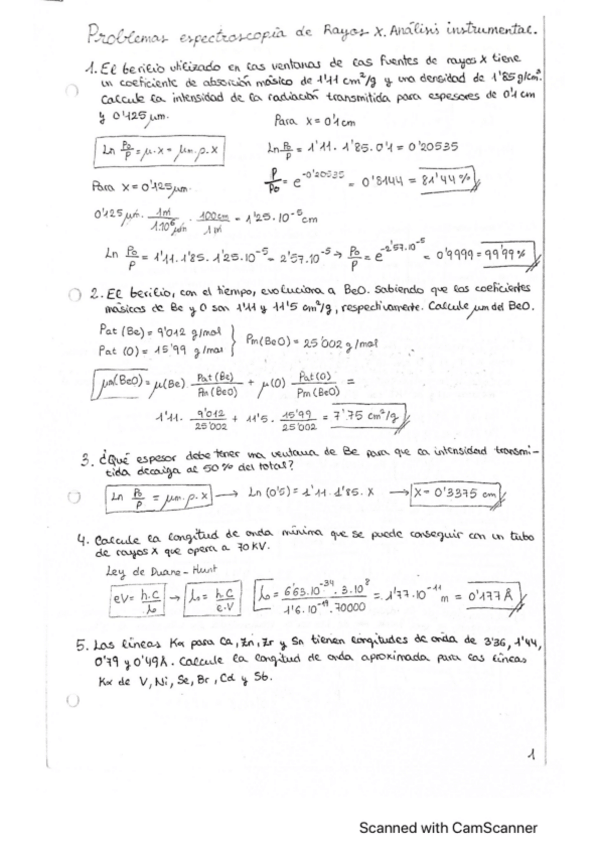 Problemas espectroscopia de Rayos X. Análisis instrumental.
1. El berilio utilizado en las ventanas de las fuentes de rayos X tiene
un coeficiente de absorción másico de 1'11 cm²/g y una densidad de 1'85 g/cm³.
Calcule la intensidad de la radiación transmitida para espesores de 0'1 cm
y 0'125 µm.
Para x = 0'1 cm
Ln Po/P = µ·x = µm·ρ·x
Ln Po/P = 1'11 · 1'85 · 0'1 = 0'20535
P/Po = e^-0'20535 = 0'8144 = 81'44%
Para x = 0'125 µm
0'125 µm · 1m/1·10⁶ µm · 100cm/1m = 1'25·10⁻⁵ cm
Ln Po/P = 1'11 · 1'85 · 1'25·10⁻⁵ = 2'57·10⁻⁵ → Po/P = e^-2'57·10⁻⁵ = 0'9999 = 99'99%
2. El berilio, con el tiempo, evoluciona a BeO. Sabiendo que los coeficientes
másicos de Be y O son 1'11 y 11'5 cm²/g, respectivamente. Calcule µm del BeO.
Pat (Be) = 9'012 g/mol
Pat (O) = 15'99 g/mol
Pm (BeO) = 25'002 g/mol
µm(BeO) = µ(Be) Pat (Be)/Pm (BeO) + µ(O) Pat(O)/Pm (BeO) =
1'11 · 9'012/25'002 + 11'5 · 15'99/25'002 = 7'75 cm²/g
3. ¿Qué espesor debe tener una ventana de Be para que la intensidad transmi-
tida decaiga al 50% del total?
Ln Po/P = µm·ρ·x → Ln (0'5) = 1'11 · 1'85 · x → x = 0'3375 cm
4. Calcule la longitud de onda mínima que se puede conseguir con un tubo
de rayos X que opera a 70 KV.
Ley de Duane-Hunt
eV = h·c/λo → λo = h·c/e·V
λo = 6'63·10⁻³⁴ · 3·10⁸/1'6·10⁻¹⁹ · 70000 = 1'77·10⁻¹¹ m = 0'177 Å
5. Las líneas Kα para Ca, Zn, Zr y Sn tienen longitudes de onda de 3'36, 1'44,
0'79 y 0'49 Å. Calcule la longitud de onda aproximada para las líneas
Kα de V, Ni, Se, Br, Cd y Sb.
1
Scanned with CamScanner